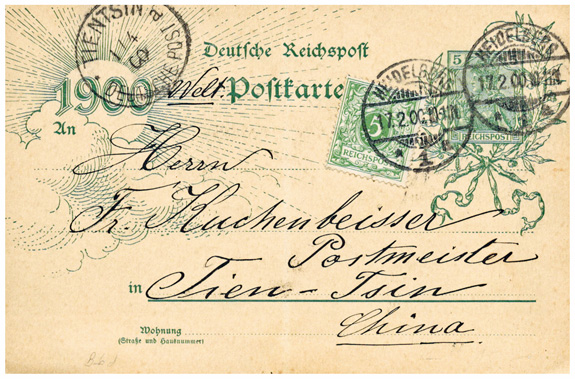 TIENTSIN
DEUTSCHE POST
Deutsche Reichspost
1900
Welt Postkarte
5
REICHSPOST
HEIDELBERG
17.2.00.
1.
5
REICHSPOST
HEIDELBERG
17.2.00.
An
Herrn
Fr. Kuchenbeisser
Postmeister
in Tien-Tsin
China
Wohnung
(Straße und Hausnummer)